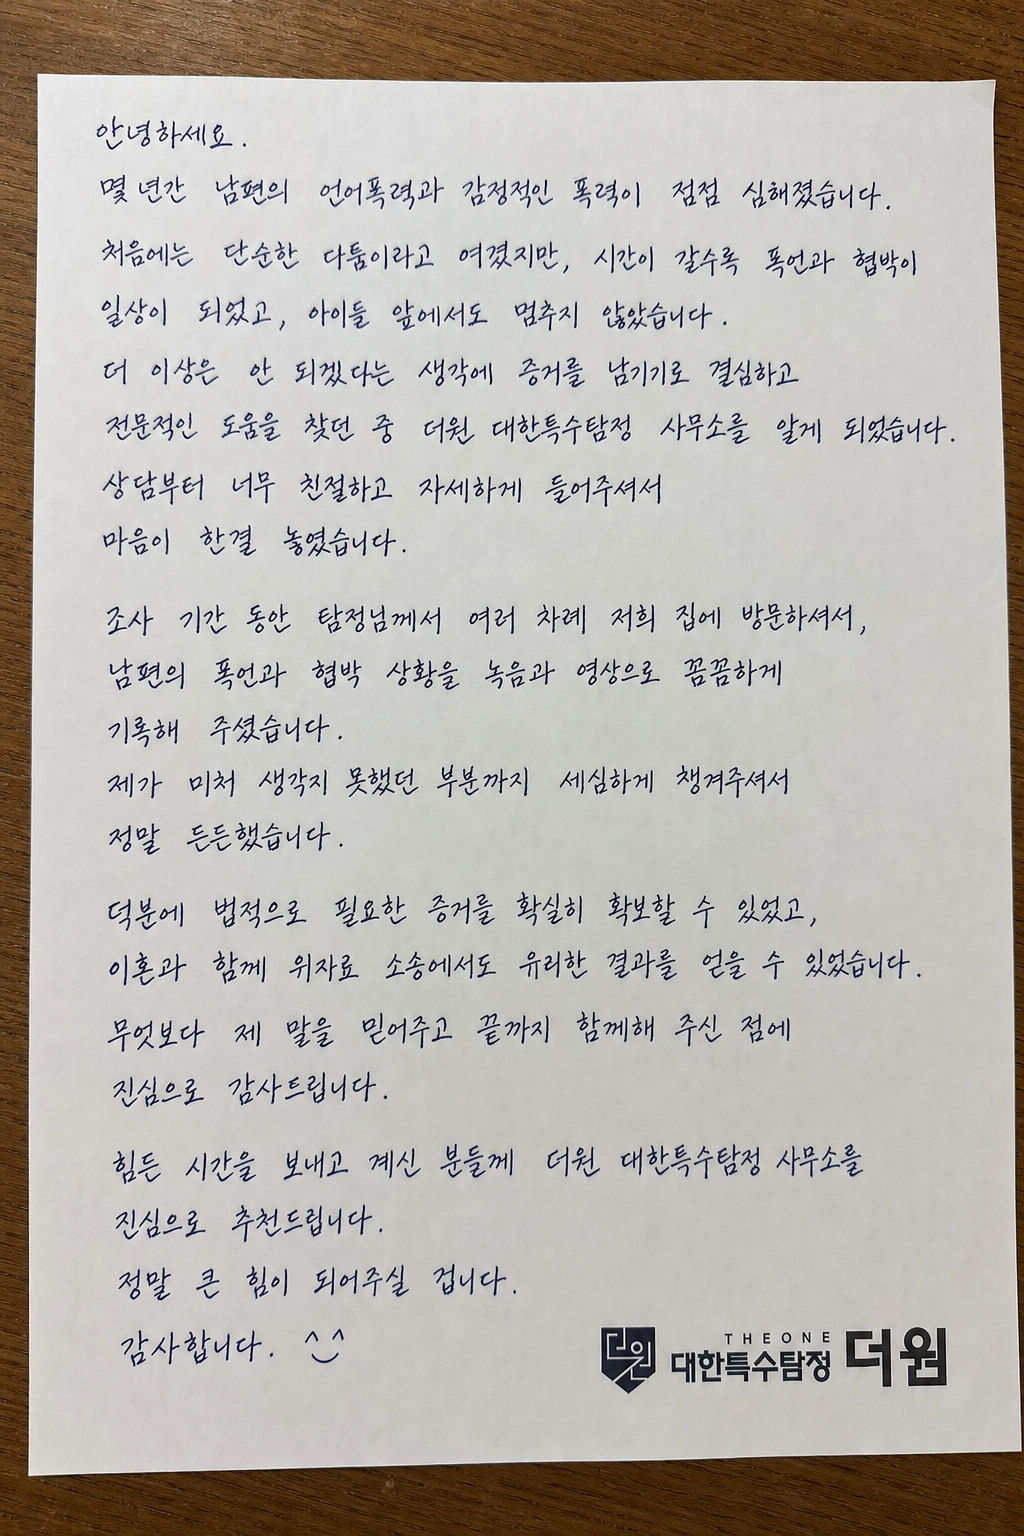 안녕하세요.
몇 년간 남편의 언어폭력과 감정적인 폭력이 점점 심해졌습니다.
처음에는 단순한 다툼이라고 여겼지만, 시간이 갈수록 폭언과 협박이
일상이 되었고, 아이들 앞에서도 멈추지 않았습니다.
더 이상은 안 되겠다는 생각에 증거를 남기기로 결심하고
전문적인 도움을 찾던 중 더원 대한특수탐정 사무소를 알게 되었습니다.
상담부터 너무 친절하고 자세하게 들어주셔서
마음이 한결 놓였습니다.
조사 기간 동안 탐정님께서 여러 차례 저희 집에 방문하셔서,
남편의 폭언과 협박 상황을 녹음과 영상으로 꼼꼼하게
기록해 주셨습니다.
제가 미처 생각지 못했던 부분까지 세심하게 챙겨주셔서
정말 든든했습니다.
덕분에 법적으로 필요한 증거를 확실히 확보할 수 있었고,
이혼과 함께 위자료 소송에서도 유리한 결과를 얻을 수 있었습니다.
무엇보다 제 말을 믿어주고 끝까지 함께해 주신 점에
진심으로 감사드립니다.
힘든 시간을 보내고 계신 분들께 더원 대한특수탐정 사무소를
진심으로 추천드립니다.
정말 큰 힘이 되어주실 겁니다.
감사합니다. ^‿^
더원
THEONE
대한특수탐정 더원